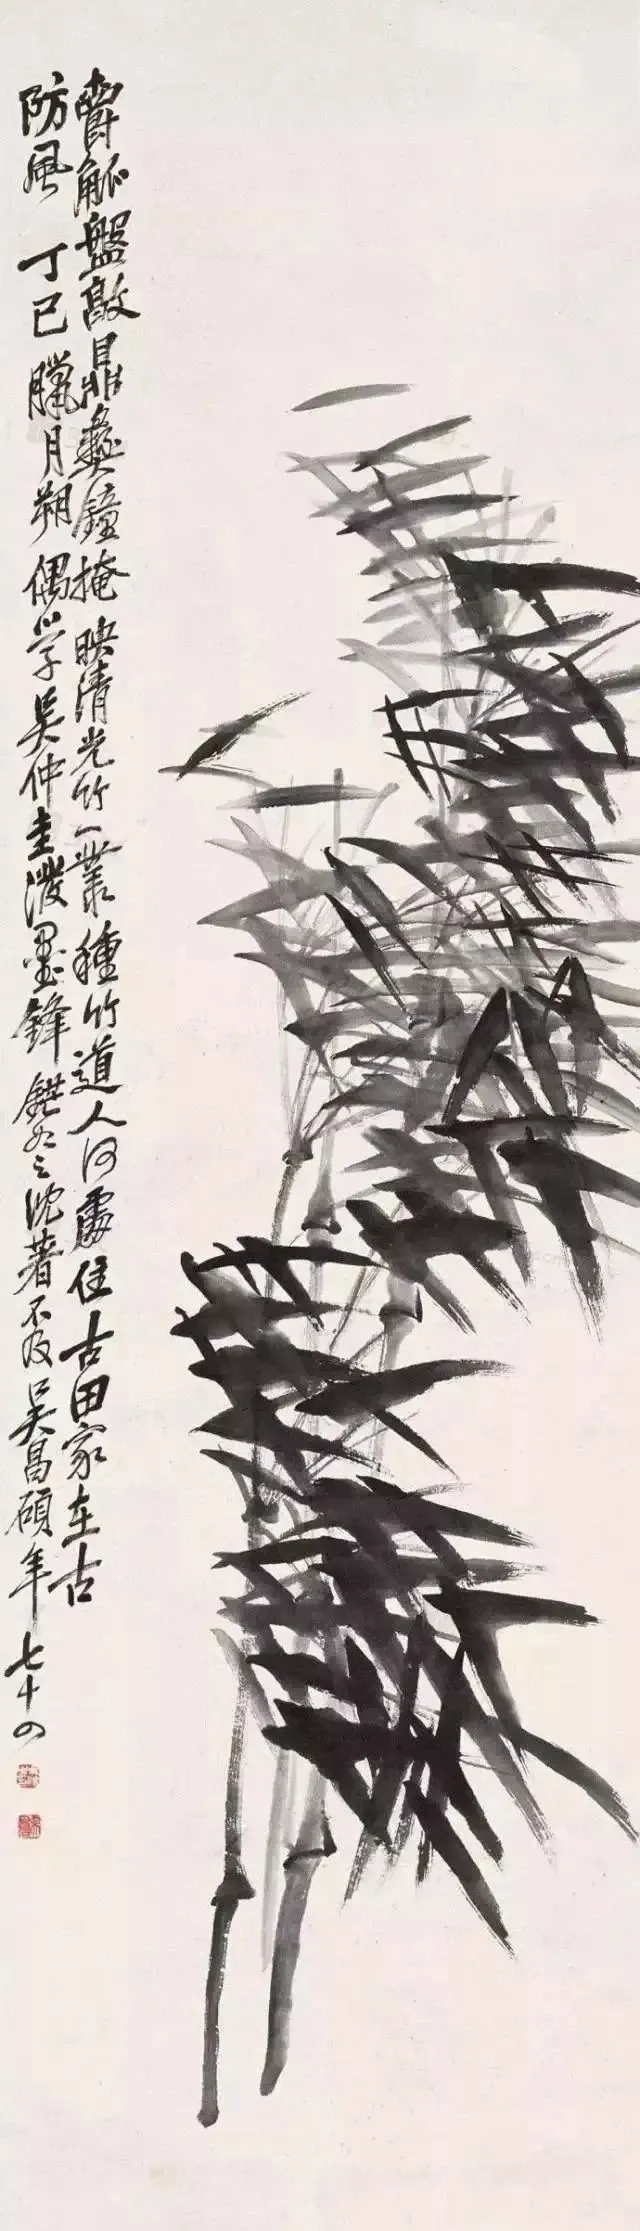 爵觚盤敦鼎彝鐘掩映清光竹一叢種竹道人何處住古田家在古
防風丁巳臘月朔偶學吳仲圭潑墨鋒錯落之沈著不及吳昌碩年七十四